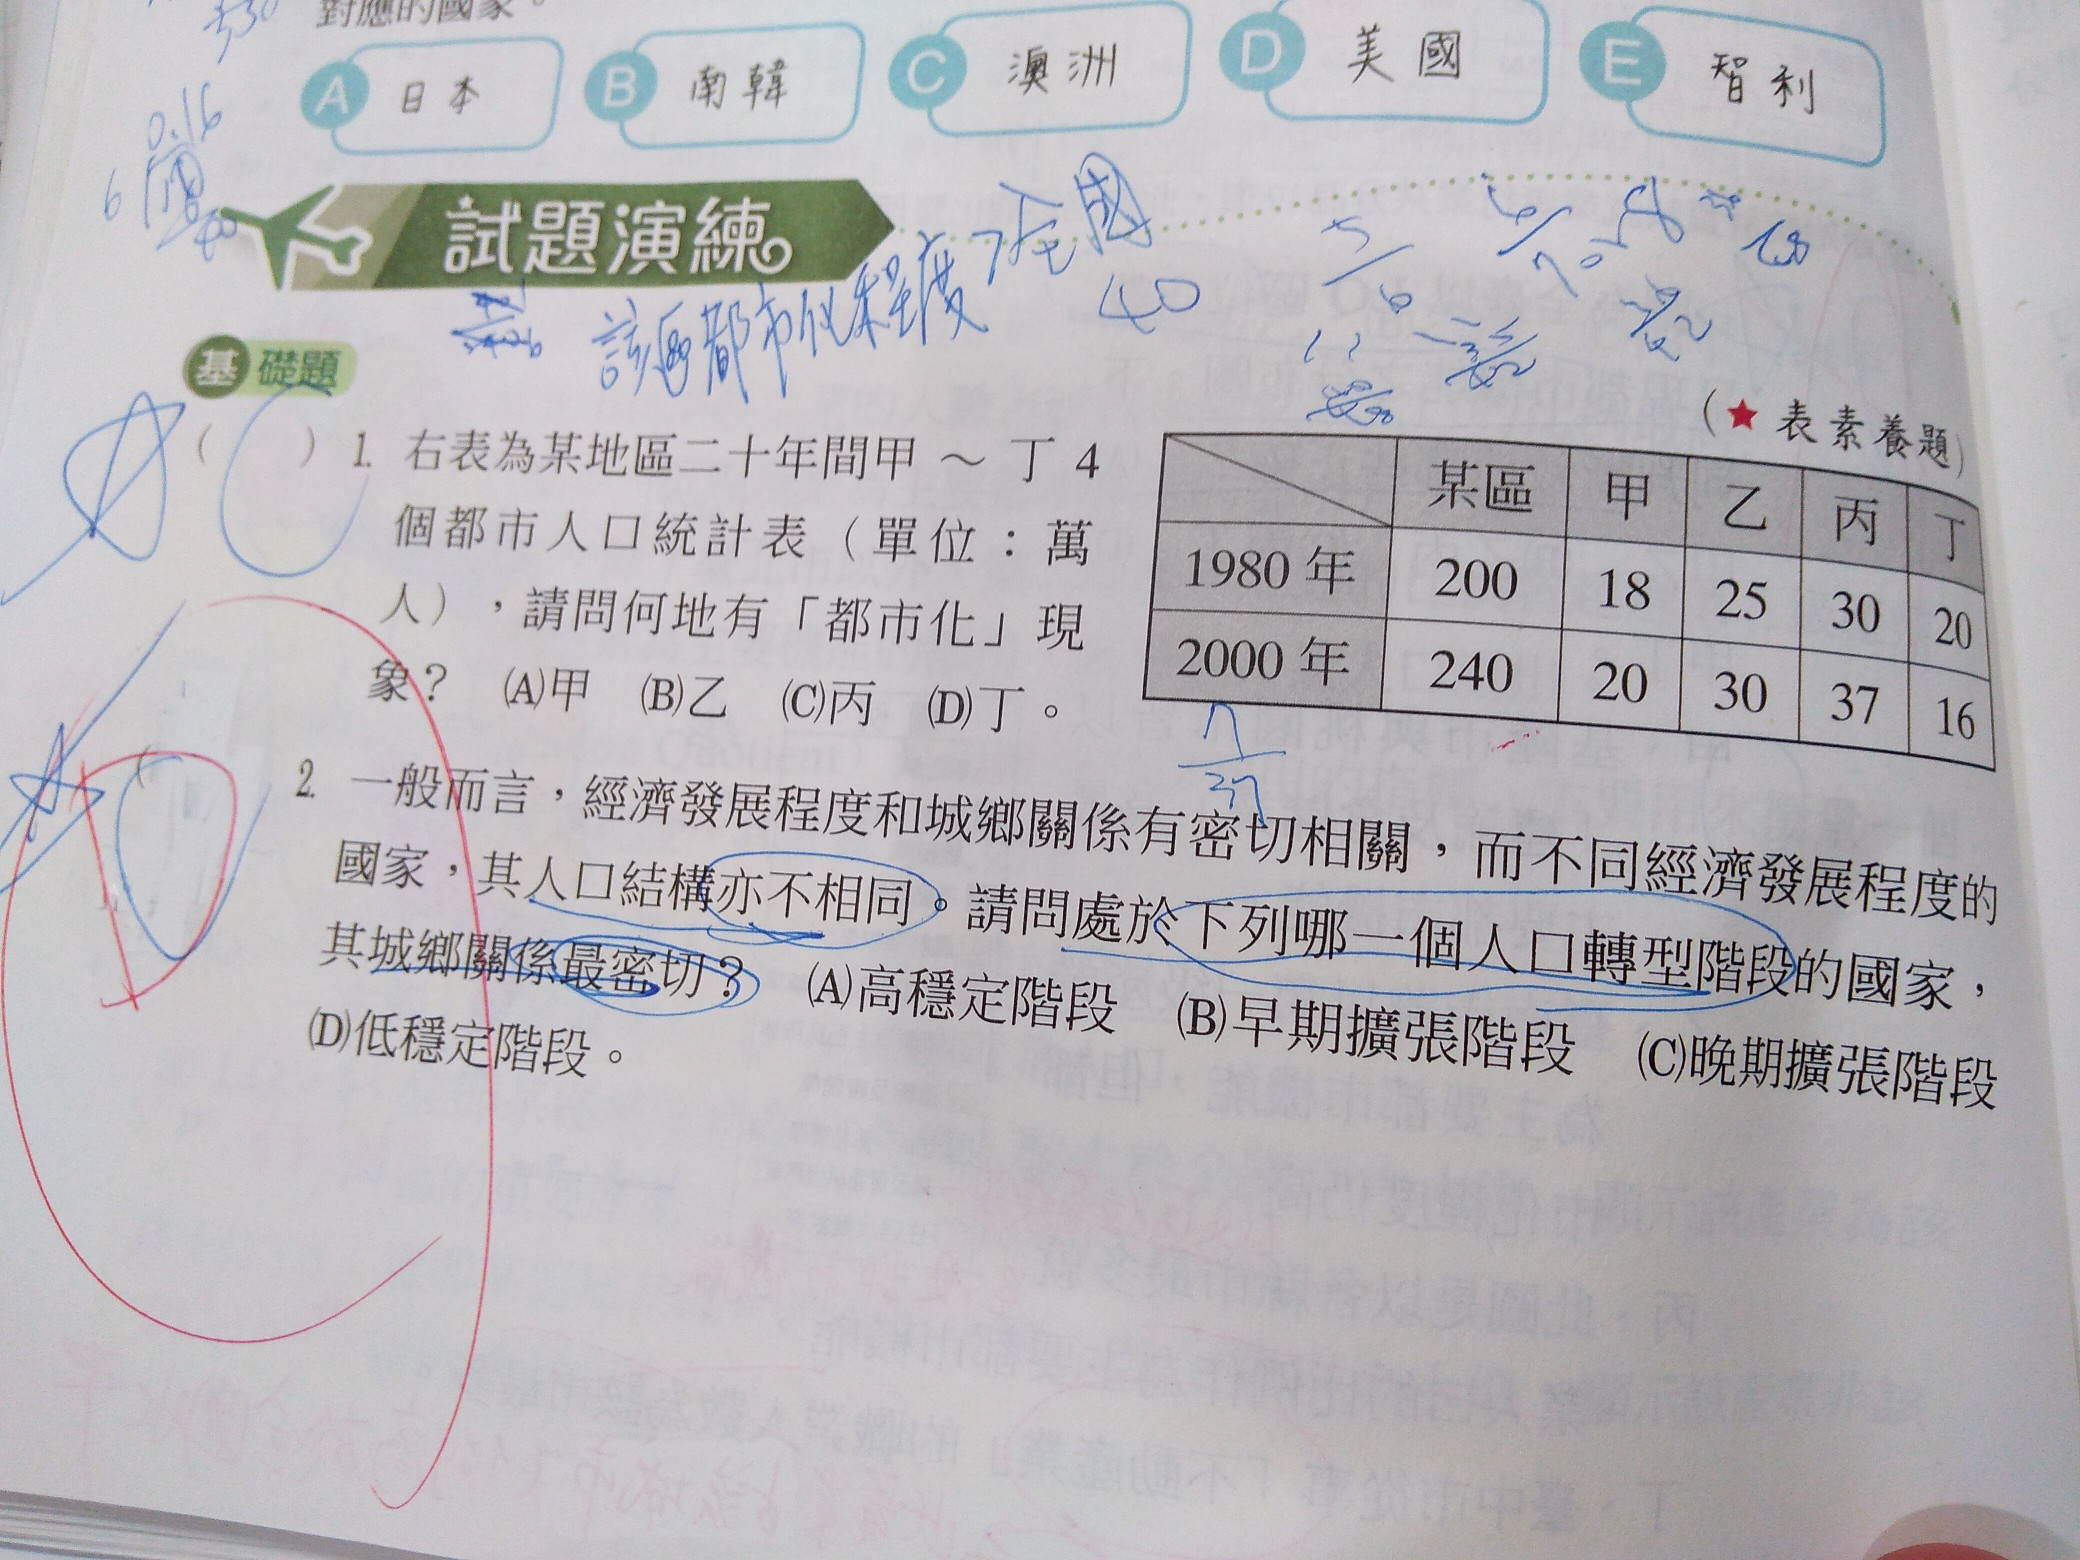 對應的國家。
A 日本 B 南韓 C 澳洲 D 美國 E 智利
0.16
6
試題演練
全國
40
該區都市化程度
基礎題
(★表素養題)
( C ) 1. 右表為某地區二十年間甲～丁4
個都市人口統計表（單位：萬
人），請問何地有「都市化」現
象？ (A)甲 (B)乙 (C)丙 (D)丁。
某區 甲 乙 丙 丁
1980 年 200 18 25 30 20
2000 年 240 20 30 37 16
( D 2. 一般而言，經濟發展程度和城鄉關係有密切相關，而不同經濟發展程度的
國家，其人口結構亦不相同。請問處於下列哪一個人口轉型階段的國家，
其城鄉關係最密切？ (A)高穩定階段 (B)早期擴張階段 (C)晚期擴張階段
(D)低穩定階段。